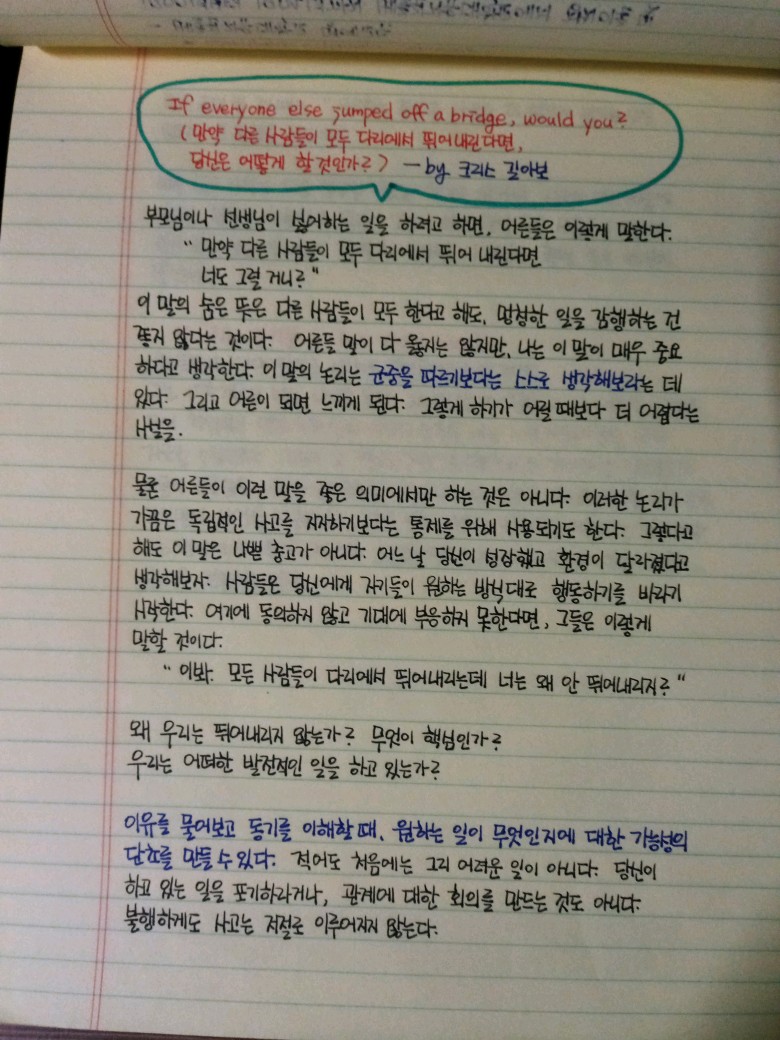 If everyone else jumped off a bridge, would you?
(만약 다른 사람들이 모두 다리에서 뛰어내린다면,
당신은 어떻게 할 것인가?) — by 크리스 길아보
부모님이나 선생님이 싫어하는 일을 하려고 하면, 어른들은 이렇게 말한다.
"만약 다른 사람들이 모두 다리에서 뛰어 내린다면
너도 그럴 거니?"
이 말의 숨은 뜻은 다른 사람들이 모두 한다고 해도, 멍청한 일을 감행하는 건
좋지 않다는 것이다. 어른들 말이 다 옳지는 않지만, 나는 이 말이 매우 중요
하다고 생각한다. 이 말의 논리는 군중을 따르기보다는 스스로 생각해보라는 데
있다. 그리고 어른이 되면 느끼게 된다. 그렇게 하기가 어릴 때보다 더 어렵다는
사실을.
물론 어른들이 이런 말을 좋은 의미에서만 하는 것은 아니다. 이러한 논리가
가끔은 독립적인 사고를 지지하기보다는 통제를 위해 사용되기도 한다. 그렇다고
해도 이 말은 나쁜 충고가 아니다. 어느 날 당신이 성장했고 환경이 달라졌다고
생각해보자. 사람들은 당신에게 자기들이 원하는 방식대로 행동하기를 바라기
시작한다. 여기에 동의하지 않고 기대에 부응하지 못한다면, 그들은 이렇게
말할 것이다.
"이봐. 모든 사람들이 다리에서 뛰어내리는데 너는 왜 안 뛰어내리지?"
왜 우리는 뛰어내리지 않는가? 무엇이 핵심인가?
우리는 어떠한 발전적인 일을 하고 있는가?
이유를 물어보고 동기를 이해할 때, 원하는 일이 무엇인지에 대한 가능성의
단초를 만들 수 있다. 적어도 처음에는 그리 어려운 일이 아니다. 당신이
하고 있는 일을 포기하라거나, 관계에 대한 회의를 만드는 것도 아니다.
불행하게도 사고는 저절로 이루어지지 않는다.